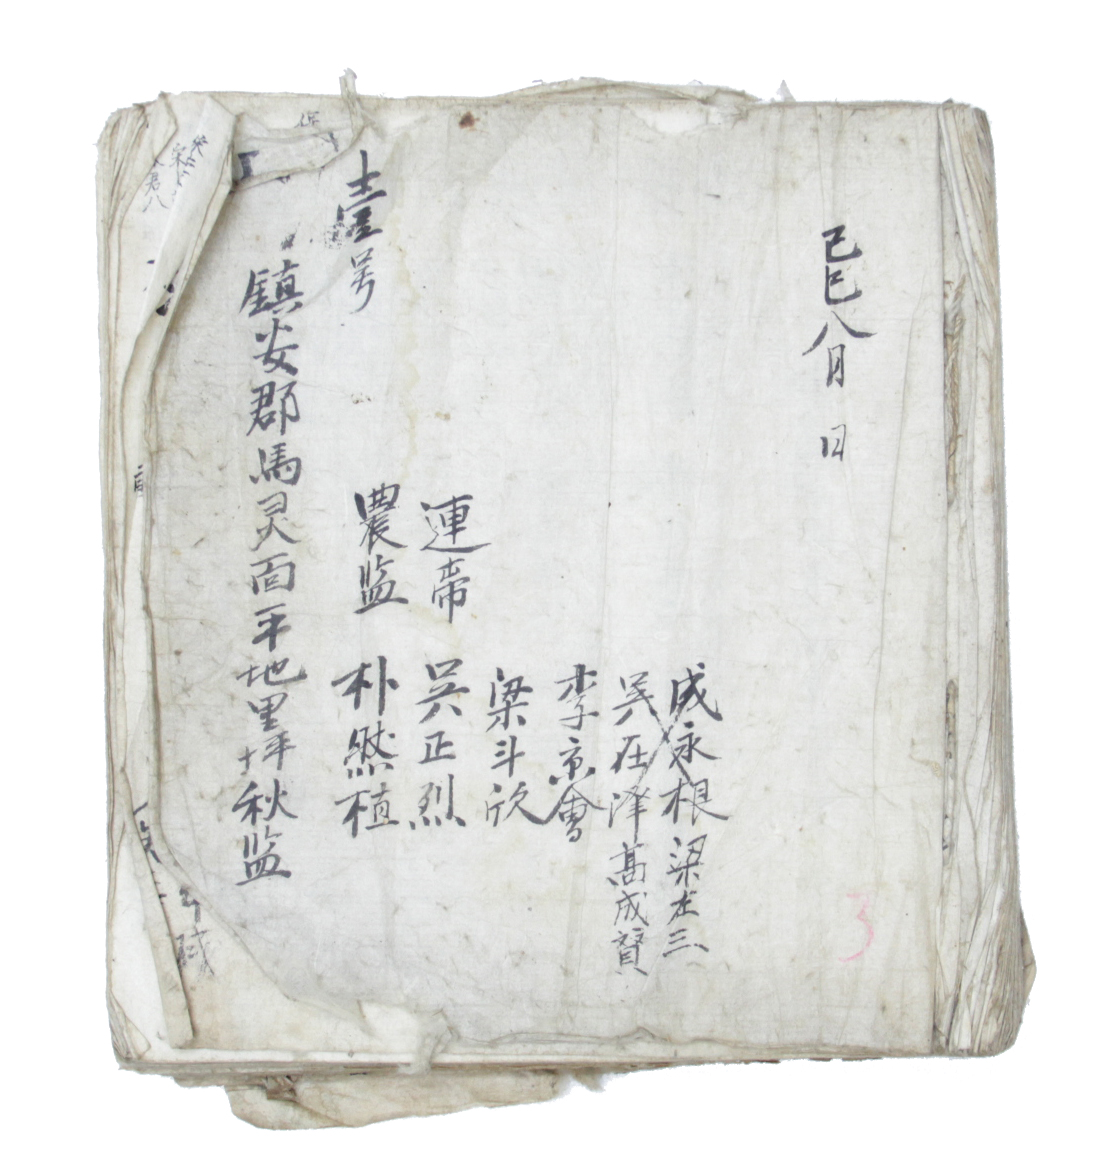 己巳八月 日
成永根 梁在三
吳在澤 高成賛
李京會
梁斗欣
連帝 吳正烈
農监 朴然植
壹号
鎮安郡馬灵面平地里坪秋监
3